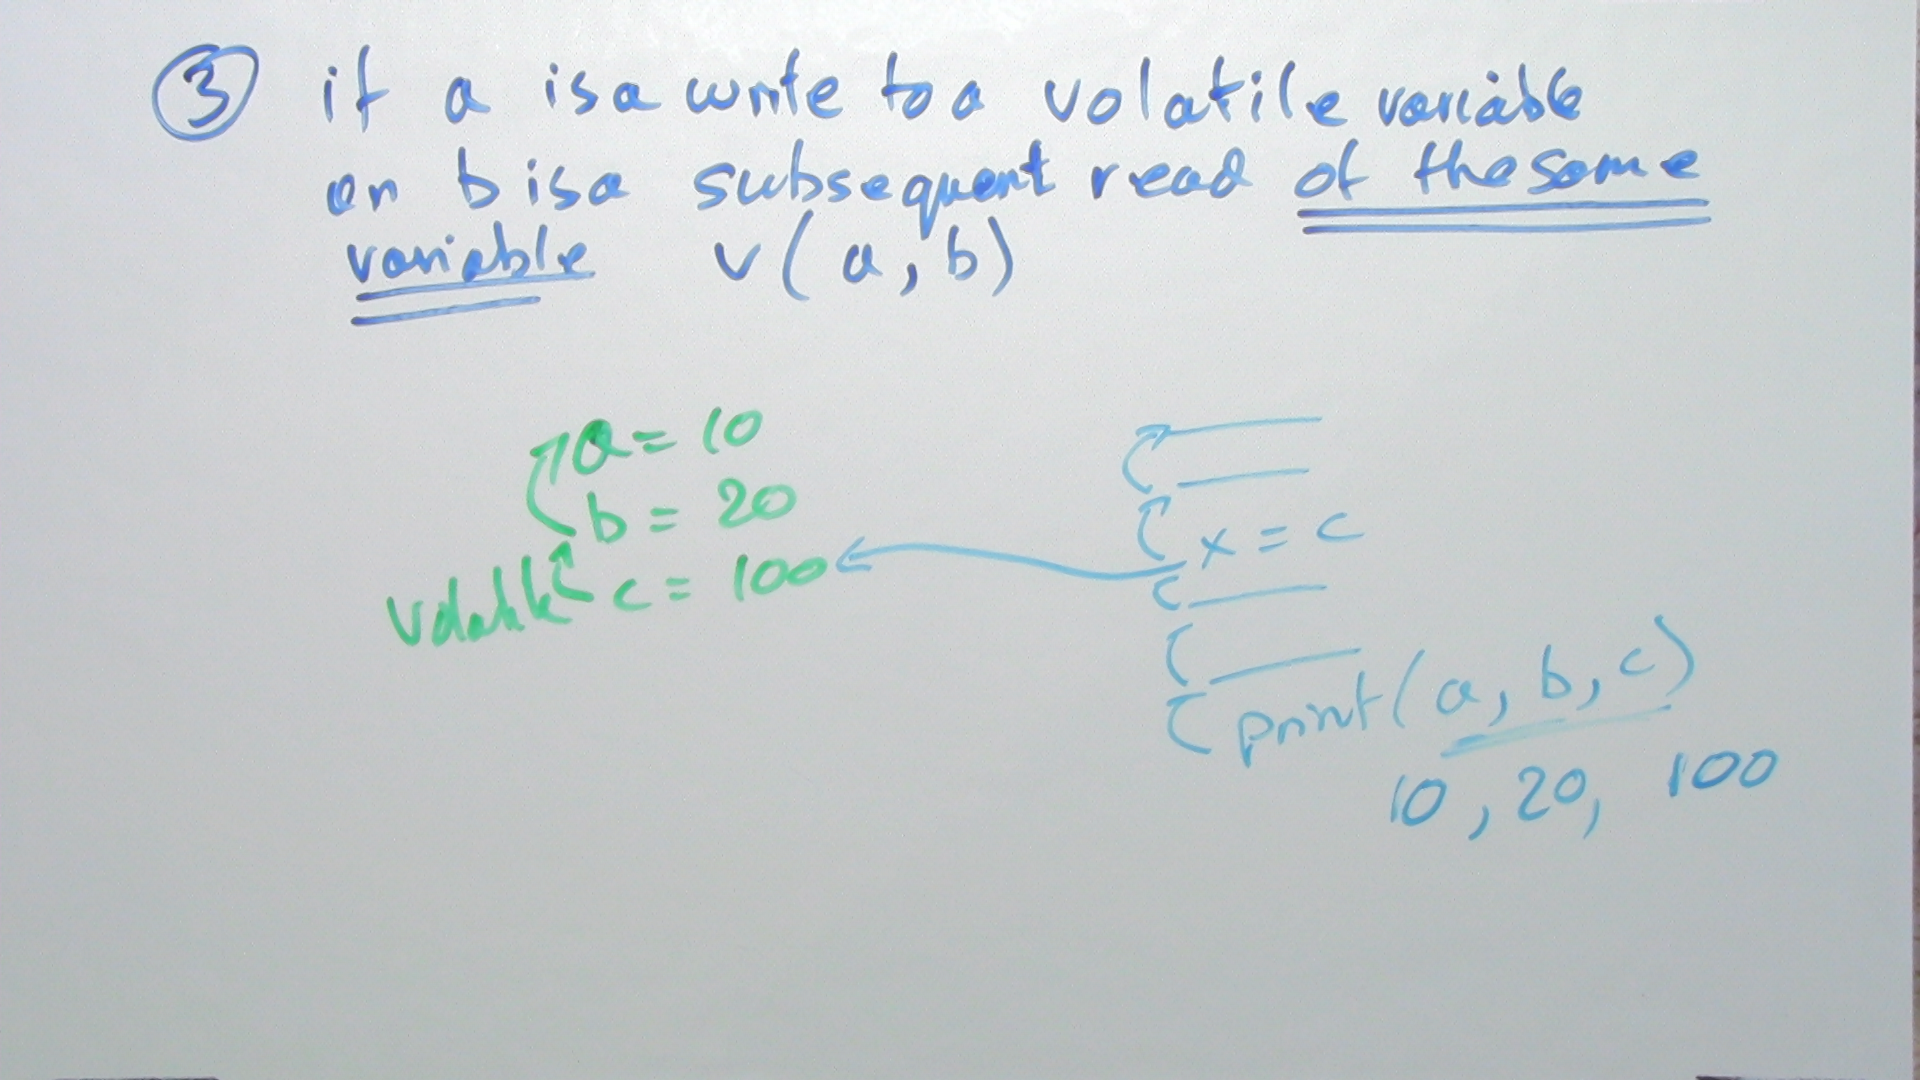 ③ if a is a write to a volatile variable
an b is a subsequent read of the same
variable v(a, b)
a = 10
b = 20
volatile c = 100
x = c
print(a, b, c)
10, 20, 100